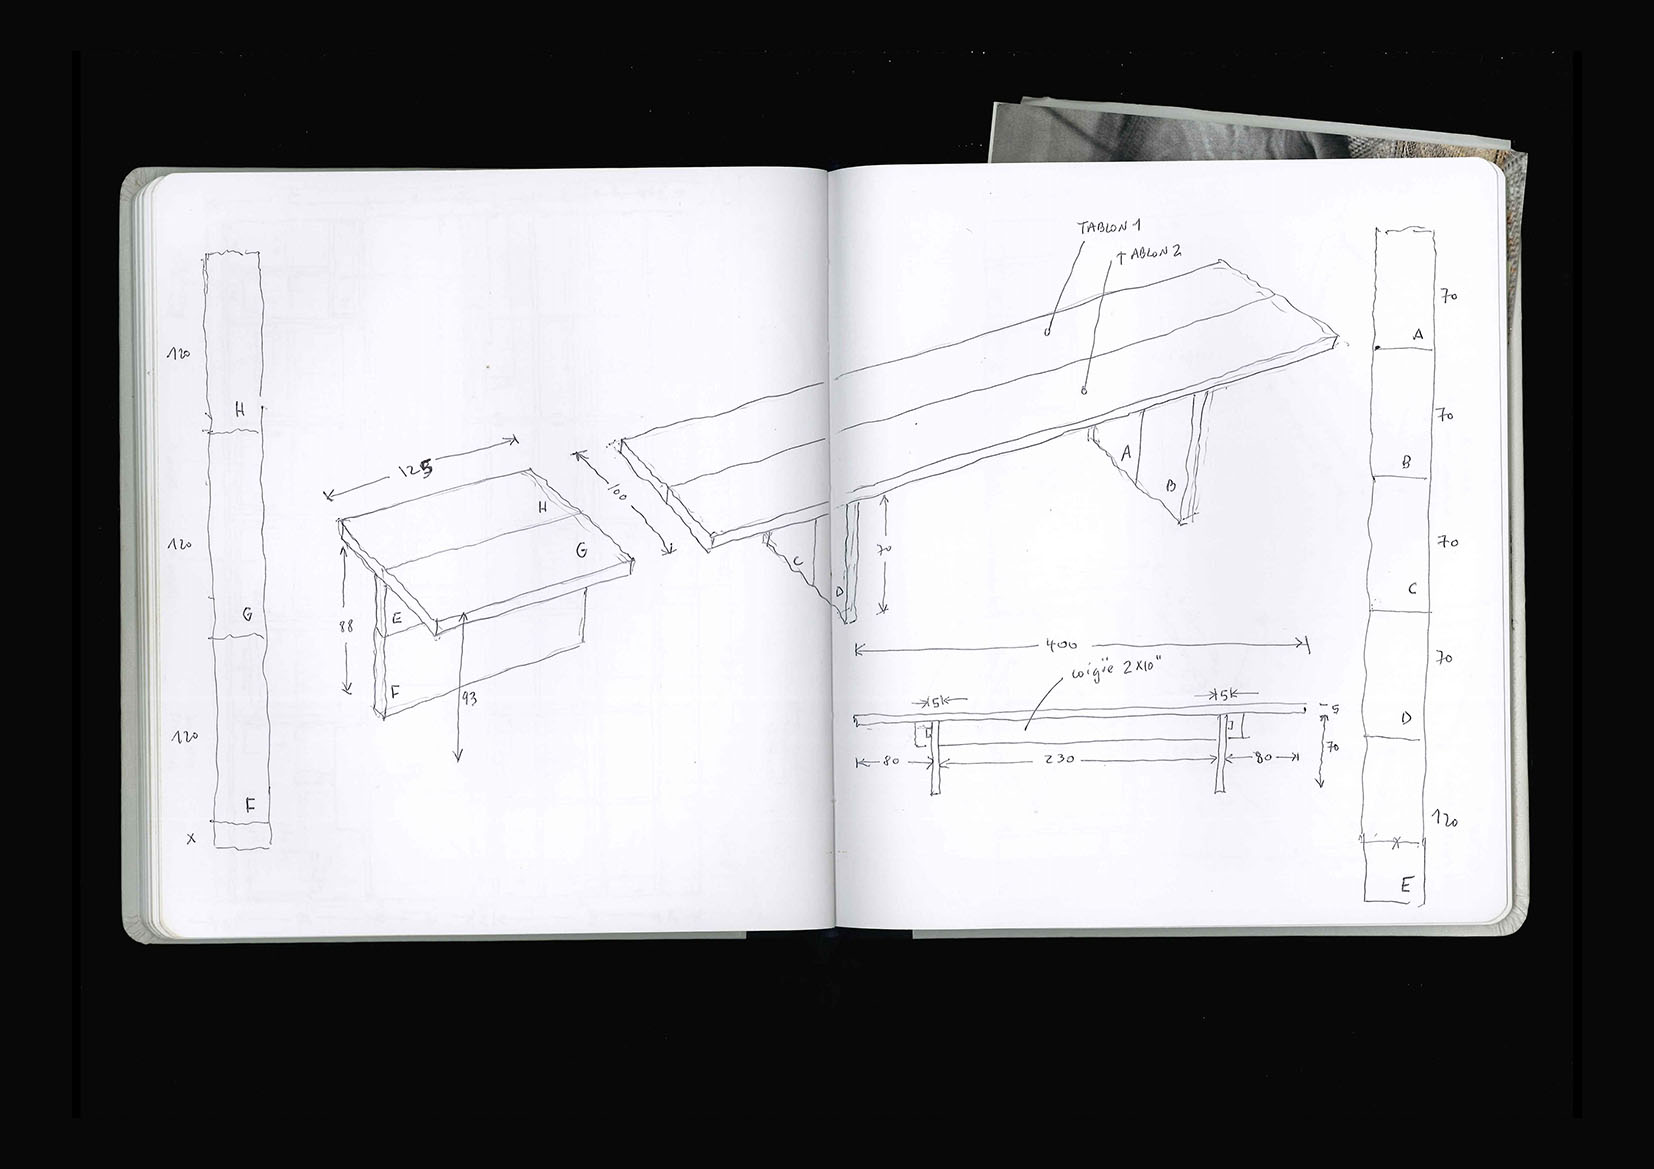 120
H
120
G
120
F
X
125
H
G
88
E
F
93
100
TABLON 1
TABLON 2
A
B
C
D
70
400
2X10"
5
5
5
80
230
80
70
70
A
70
B
70
C
70
D
120
X
E